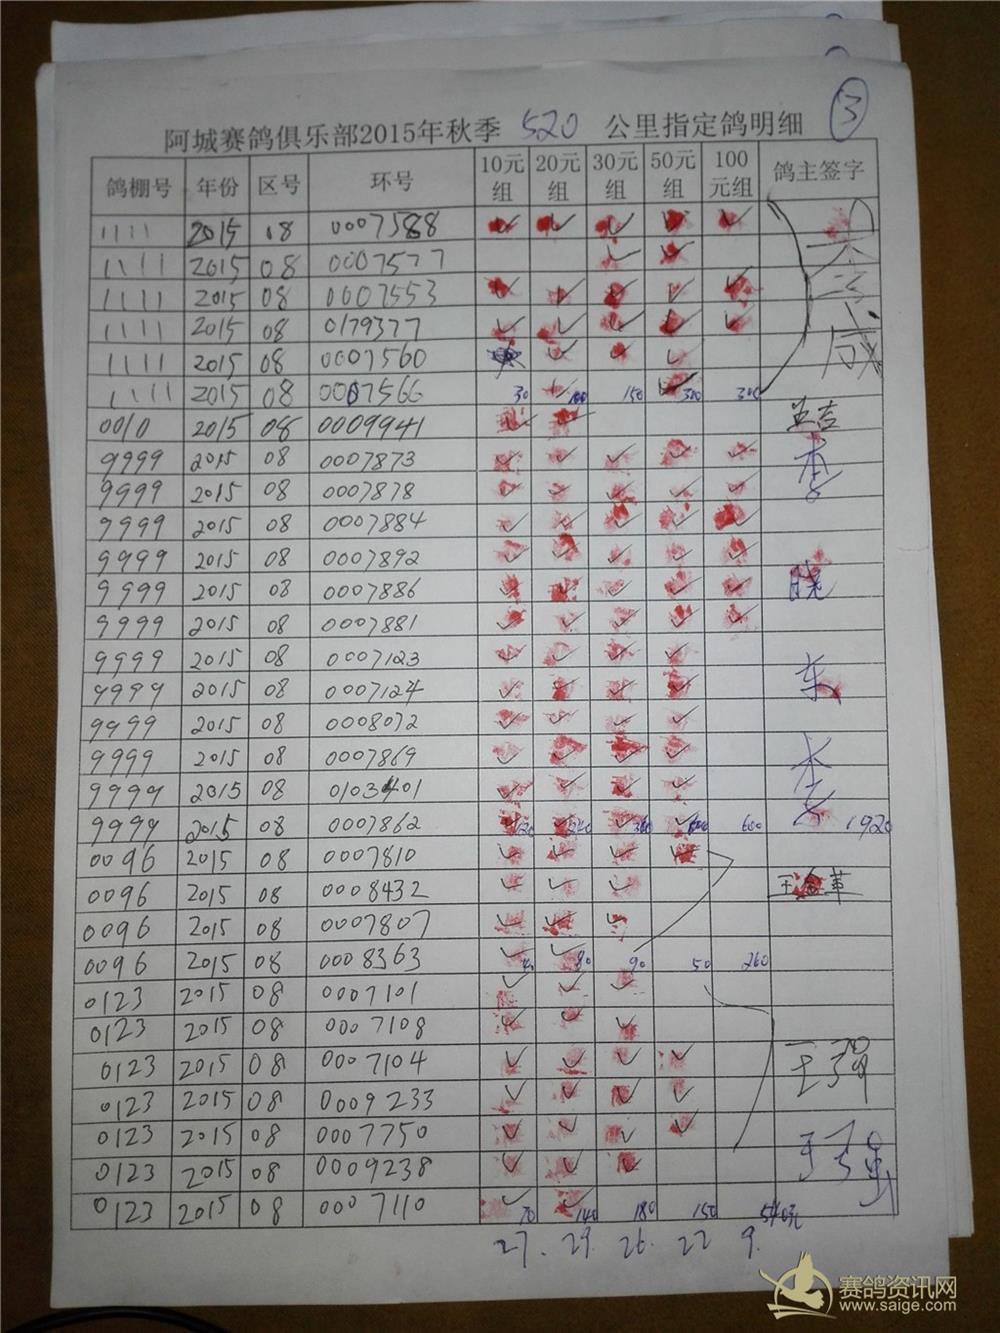 ③
阿城赛鸽俱乐部2015年秋季 520 公里指定鸽明细
鸽棚号 年份 区号 环号 10元组 20元组 30元组 50元组 100元组 鸽主签字
1111 2015 08 0007588 ✓ ✓ ✓ ✓ ✓
1111 2015 08 0007577 ✓ ✓
1111 2015 08 0007553 ✓ ✓ ✓ ✓ ✓
1111 2015 08 0179377 ✓ ✓ ✓ ✓ ✓
1111 2015 08 0007560 ✓ ✓ ✓
1111 2015 08 0007566 30 ✓ 100 150 ✓ 300 300
0010 2015 08 0009941 ✓ ✓ 王吉
9999 2015 08 0007873 ✓ ✓ ✓ ✓ ✓ 李
9999 2015 08 0007878 ✓ ✓ ✓ ✓ ✓
9999 2015 08 0007884 ✓ ✓ ✓ ✓ ✓
9999 2015 08 0007892 ✓ ✓ ✓ ✓ ✓
9999 2015 08 0007886 ✓ ✓ ✓ ✓ ✓ 晓
9999 2015 08 0007881 ✓ ✓ ✓ ✓ ✓
9999 2015 08 0007123 ✓ ✓ ✓ ✓
9999 2015 08 0007124 ✓ ✓ ✓ ✓ 东
9999 2015 08 0008072 ✓ ✓ ✓ ✓
9999 2015 08 0007869 ✓ ✓ ✓ ✓
9999 2015 08 0103401 ✓ ✓ ✓ ✓ 李
9999 2015 08 0007862 ✓ 120 ✓ 240 ✓ 360 ✓ 600 600 1920
0096 2015 08 0007810 ✓ ✓ ✓ ✓
0096 2015 08 0008432 ✓ ✓ ✓ 王金革
0096 2015 08 0007807 ✓ ✓ ✓
0096 2015 08 0008363 ✓ 40 ✓ 80 90 50 260
0123 2015 08 0007101 ✓ ✓ ✓
0123 2015 08 0007108 ✓ ✓ ✓
0123 2015 08 0007104 ✓ ✓ ✓ ✓ 王强
0123 2015 08 0009233 ✓ ✓ ✓ ✓
0123 2015 08 0007750 ✓ ✓ ✓ ✓
0123 2015 08 0009238 ✓ ✓ ✓ 王强
0123 2015 08 0007110 ✓ 70 ✓ 140 180 150 540元
27. 29. 26. 22 9.
赛鸽资讯网
www.saige.com